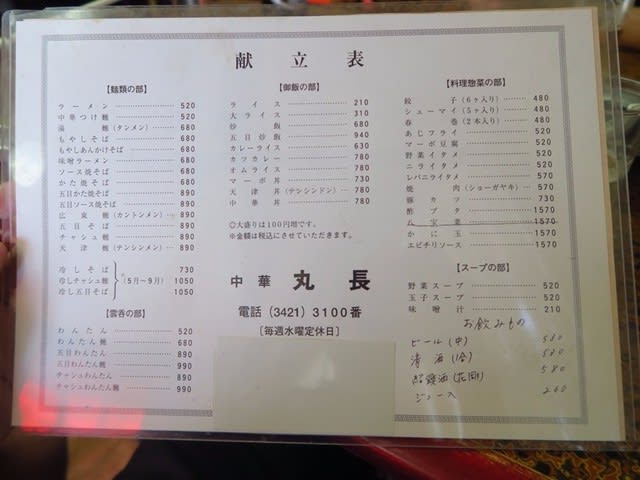 献立表
【麺類の部】
ラーメン 520
中華つけ麺 520
湯麺(タンメン) 680
もやしそば 680
もやしあんかけそば 680
味噌ラーメン 680
ソース焼そば 680
かた焼そば 680
五目かた焼そば 890
五目ソース焼そば 890
広東麺(カントンメン) 890
五目そば 890
チャシュ麺 890
天津麺(テンシンメン) 890
冷しそば 730
冷しチャシュ麺 (5月〜9月) 1050
冷し五目そば 1050
【雲呑の部】
わんたん 520
わんたん麺 680
五目わんたん 890
五目わんたん麺 990
チャシュわんたん 890
チャシュわんたん麺 990
【御飯の部】
ライス 210
大ライス 310
炒飯 680
五目炒飯 940
カレーライス 630
カツカレー 780
オムライス 780
マーボ丼 730
天津丼(テンシンドン) 780
中華丼 780
◎大盛りは100円増です。
※金額は税込にさせていただきます。
中華 丸長
電話(3421)3100番
〔毎週水曜定休日〕
【料理惣菜の部】
餃子(6ヶ入り) 480
シューマイ(5ヶ入り) 480
春巻(2本入り) 480
あじフライ 520
マーボ豆腐 520
野菜イタメ 520
ニライタメ 520
レバニライタメ 570
焼肉(ショーガヤキ) 570
豚カツ 730
酢ブタ 1570
八宝菜 1570
かに玉 1570
エビチリソース 1570
【スープの部】
野菜スープ 520
玉子スープ 520
味噌汁 210
お飲みもの
ビール(中) 580
清酒(1合) 580
紹興酒(花彫) 580
ジュース 260